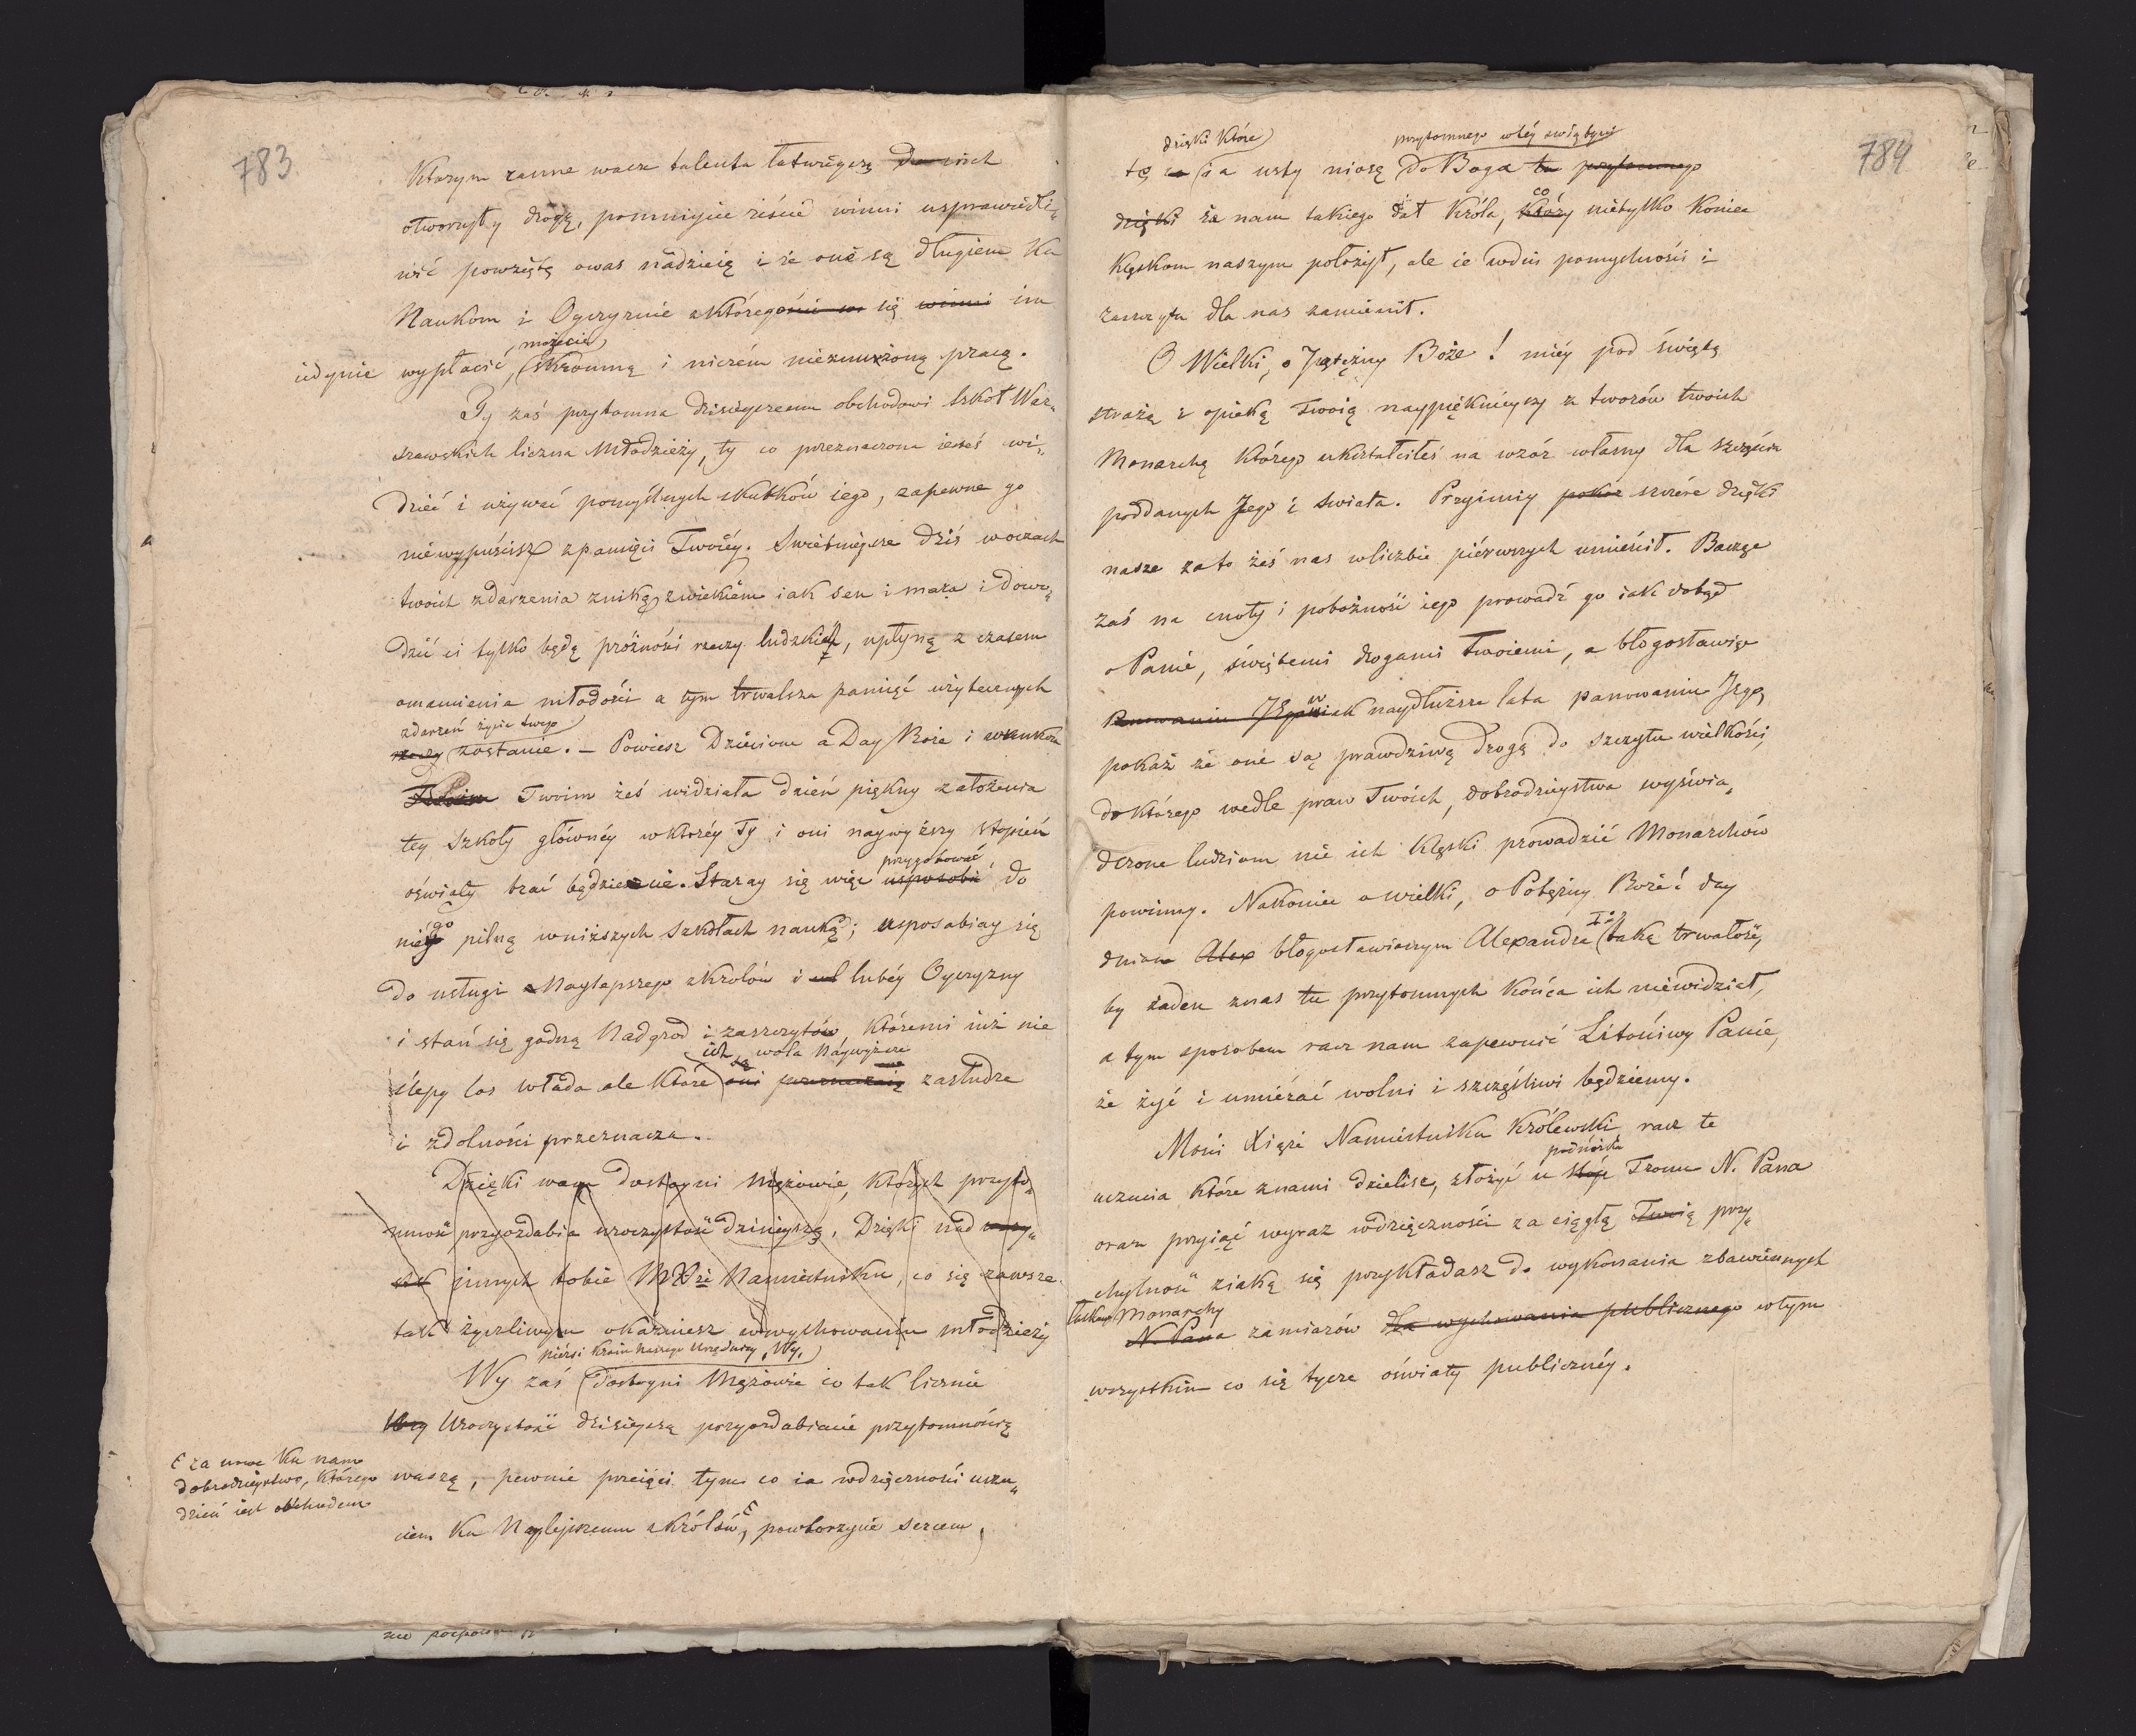 783
Ktorym ranne wasze talenta łatwieyszą do nich
otworzyły drogę, pomniycie żeście winni usprawiedli„
wić powziętą owas nadzieię i że one są długiem ku
Naukom i Oyczyznie zktórego się winni im
możecie
iedynie wypłacić, skromną i niczém niezmużoną pracą.
Ty zaś przytomna dzisieyszemu obchodowi Szkoł War„
szawskich liczna Młodzieży, ty co przeznaczona iesteś wi„
dzieć i używać pomyślnych skutków iego, zapewne go
niewypuścisz zpamięci Twoiéy. Swietnieysze dziś woczach
twoich zdarzenia zniką zwiekiem iak sen i mara i dowo„
dzić ci tylko będą próżności rzeczy ludzkich, upłyną z czasem
omamienia młodości a tym trwalsza pamięć użytecznych
zdarzeń życia twego
rzeczy zostanie. – Powiesz Dzieciom a Day Boże i wnukom
Twoim żeś widziała dzień piękny założenia
tey Szkoły głównéy wktoréy Ty i oni naywyższy stopień
przygotować
oświaty brać będziecie. Staray się więc usposobić do
go
niey pilną wniższych Szkołach nauką; usposabiay się
do usługi Naylepszego zKrolów i lubéy Oyczyzny
i stań się godną Nadgrod i zaszczytów, któremi iuż nie
ich wola Náywyższa
ślepy los włada ale które oni przeznaczaią zasłudze
i zdolności przeznacza.
Dzięki wam Dostoyni Mężowie, których przyto„
mność przyozdabia uroczystość dzisieyszą, Dzięki nad wszy„
stk innych tobie MXże Namiestniku, co się zawsze
tak życzliwym okazuiesz wwychowaniu młodzieży
piérsi Kraiu naszego Urzędnicy, Wy,
Wy zaś Dostoyni Mężowie co tak licznie
Uroczystość dzisieyszą przyozdabiacie przytomnością
waszą, pewnie przeięci tym co ia wdzięczności uczu„
ciem ku Naylepszemu zKrólów, powtorzycie sercem,
za nowe ku nam
dobrodzieystwo, którego
dzień iest obchodem
784
dzięki które
przytomnego wtéy swiątyni
tę co ia usty niosę do Boga tu przytomnego
co
dzięki że nam takiego dał Króla, który nietylko koniec
klęskom naszym położył, ale ie wdni pomyslności i
zaszczytu dla nas zamienił.
O Wielki, o Potężny Boże! miéy pod świętą
strażą i opieką Twoią naypięknieyszy z tworów twoich
Monarchę którego ukształciłeś na wzór własny dla szczęścia
poddanych Jego i świata. Przyimiy szczére dzięki
nasze zato żeś nas wliczbie piérwszych umieścił. Bacząc
zaś na cnoty i pobożność iego prowadź go iak dotąd
o Panie, świętemi drogami Twoiemi, a błogosławiąc
w iak naydłuższe lata panowaniu Jego,
pokaż że one są prawdziwą drogą do szczytu wielkości,
doktórego wedle praw Twoich, dobrodzieystwa wyświa„
dczone ludziom nie ich klęski prowadzić Monarchów
powinny. Nakoniec o wielki, o Potężny Boże! day
I°
dniom Alex błogosławionym Alexandra taką trwałość,
by żaden znas tu przytomnych końca ich niewidział,
a tym sposobem racz nam zapewnić Litościwy Panie,
że żyć i umiérać wolni i szczęśliwi będziemy.
Mości Xiąże Namiestniku Królewski racz te
podnóżka
uczucia które znami dzielisz, złożyć u stóp Tronu N. Pana
oraz przyiąć wyraz wdzięczności za ciągłą Twoią przy„
chylność ziaką się przykładasz do wykonania zbawiennych
Monarchy
N. Pana zamiarów dla wychowania publicznego wtym
wszystkim co się tycze oświaty publicznéy.